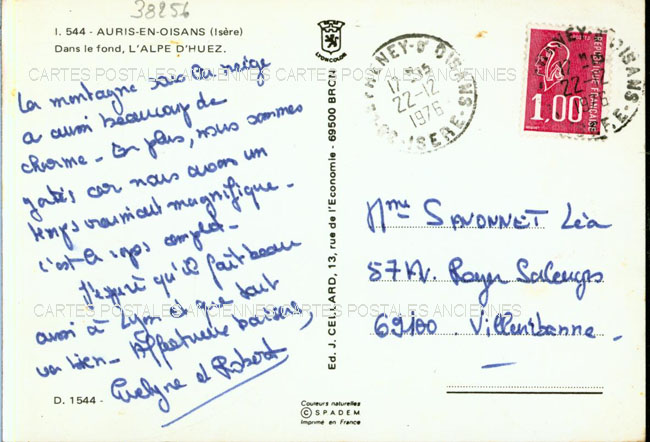 38256
I. 544 - AURIS-EN-OISANS (Isère)
Dans le fond, L'ALPE D'HUEZ.
CARTES POSTALES ANCIENNES CARTES POSTALES ANCIENNES
La montagne sans la neige
a aussi beaucoup de
charme - En plus, nous sommes
gatés car nous avons un
temps vraiment magnifique -
c'est le repos complet -
J'espère qu'il fait beau
aussi à Lyon et que tout
va bien - Affectueux baisers,
Evelyne et Robert
CARTES POSTALES ANCIENNES CARTES POSTALES ANCIENNES
D. 1544 -
LYONCOLOR
Ed. J. CELLARD, 13, rue de l'Economie - 69500 BRON
Couleurs naturelles
© SPADEM
Imprimé en France
LE FRENEY-D'OISANS
17 H 35
22-12
1976
ISERE
REPUBLIQUE FRANÇAISE
1,00
Mme SAVONNET Léa
57 Av. Roger Salengro
69100 Villeurbanne